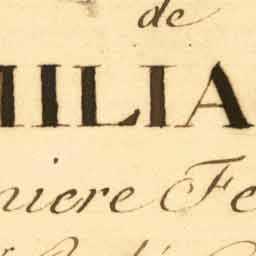 de
MILIA
niere Fe